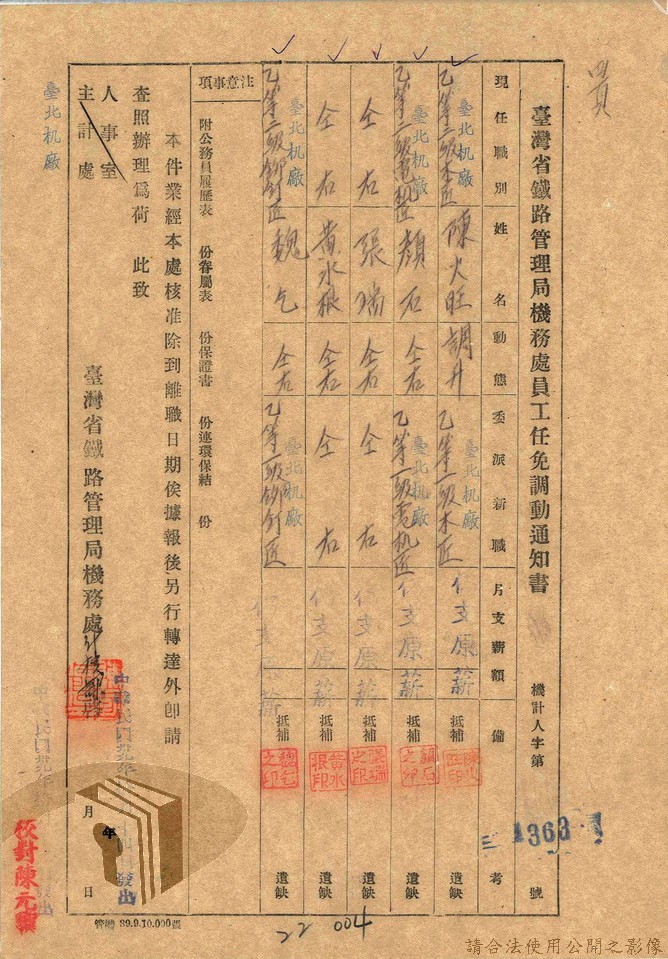 臺灣省鐵路管理局機務處員工任免調動通知書 機計人字第 1363 號
現任職別 姓名 動態 委派新職 月支薪額 備考
臺北机廠 乙等二級木匠 陳火旺 調升 臺北机廠 乙等一級木匠 仍支原薪 抵補 遺缺
臺北机廠 乙等二級電机匠 顏石 仝右 臺北机廠 乙等一級電机匠 仍支原薪 抵補 顏石之印 遺缺
仝右 張瑞 仝右 仝右 仍支原薪 抵補 張瑞之印 遺缺
仝右 黃水根 仝右 仝右 仍支原薪 抵補 黃水根印 遺缺
臺北机廠 乙等二級鉚釘匠 魏乞 仝右 臺北机廠 乙等一級鉚釘匠 仍支原薪 抵補 魏乞之印 遺缺
注意事項 附公務員履歷表 份眷屬表 份保證書 份連環保結 份
本件業經本處核准除到離職日期俟據報後另行轉達外卽請
查照辦理爲荷 此致
人事室
主計處
臺北机廠
臺灣省鐵路管理局機務處
年 月 日
發出
校對陳元
管灣 89.9.10.000張
22 004
請合法使用公開之影像